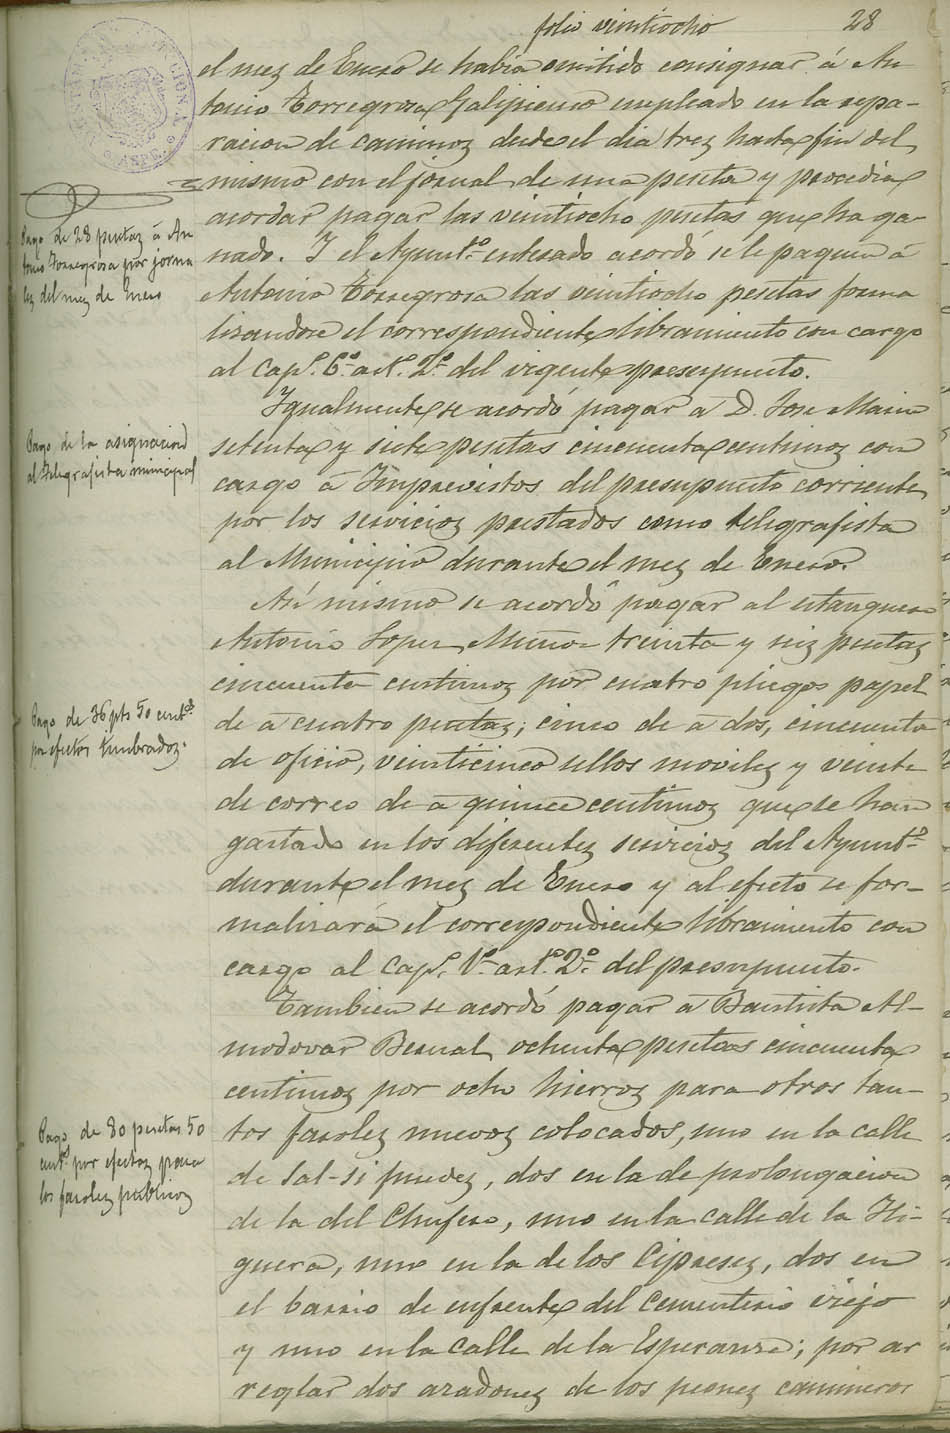 folio veintiocho 28
el mez de Enero se habia omitido consignar á An
tonio Torregrosa Galipienso empleado en la repa-
racion de caminoz desde el dia trez hasta fin del
mismo con el jornal de una peseta y procedia
acordar pagar las veintiocho pesetas que ha ga-
nado. Y el Ayunt.º enterado acordó se le paguen á
Antonio Torregrosa las veintiocho pesetas forma
lizandose el correspondiente libramiento con cargo
al Cap.º 6.º art.º 2.º del vigente presupuesto.
Pago de 28 pesetaz á An
tonio Torregrosa por jorna
lez del mez de Enero
Igualmente se acordó pagar á D. Jose Marin
setenta y siete pesetas cincuenta centimoz con
cargo á Imprevistos del presupuesto corriente
por los servicioz prestados como telegrafista
al Municipio durante el mez de Enero.
Pago de la asignacion
al telegrafista municipal
Asi mismo se acordó pagar al estanquero
Antonio Lopez Muñoz treinta y seiz pesetaz
cincuenta centimoz por cuatro pliegos papel
de á cuatro pesetaz; cinco de á dos, cincuenta
de oficio, veinticinco sellos movilez y veinte
de correo de á quince centimoz que se han
gastado en los diferentez servicioz del Ayunt.º
durante el mez de Enero y al efecto se for-
malizará el correspondiente libramiento con
cargo al Cap.º 1.º art.º 2.º del presupuesto.
Pago de 36 pts 50 cent.s
por efectos timbradoz.
Tambien se acordó pagar á Bautista Al-
modovar Bernal ochenta pesetas cincuenta
centimoz por ocho hierroz para otros tan-
tos farolez nuevoz colocados, uno en la calle
de Sal-si puedez, dos en la de prolongacion
de la del Chufero, uno en la calle de la Hi-
guera, uno en la de los Cipresez, dos en
el barrio de enfrente del Cementerio viejo
y uno en la Calle de la Esperanza; por ar
reglar dos azadonez de los peonez camineros
Pago de 80 pesetas 50
cent.s por efectoz para
los farolez publicoz